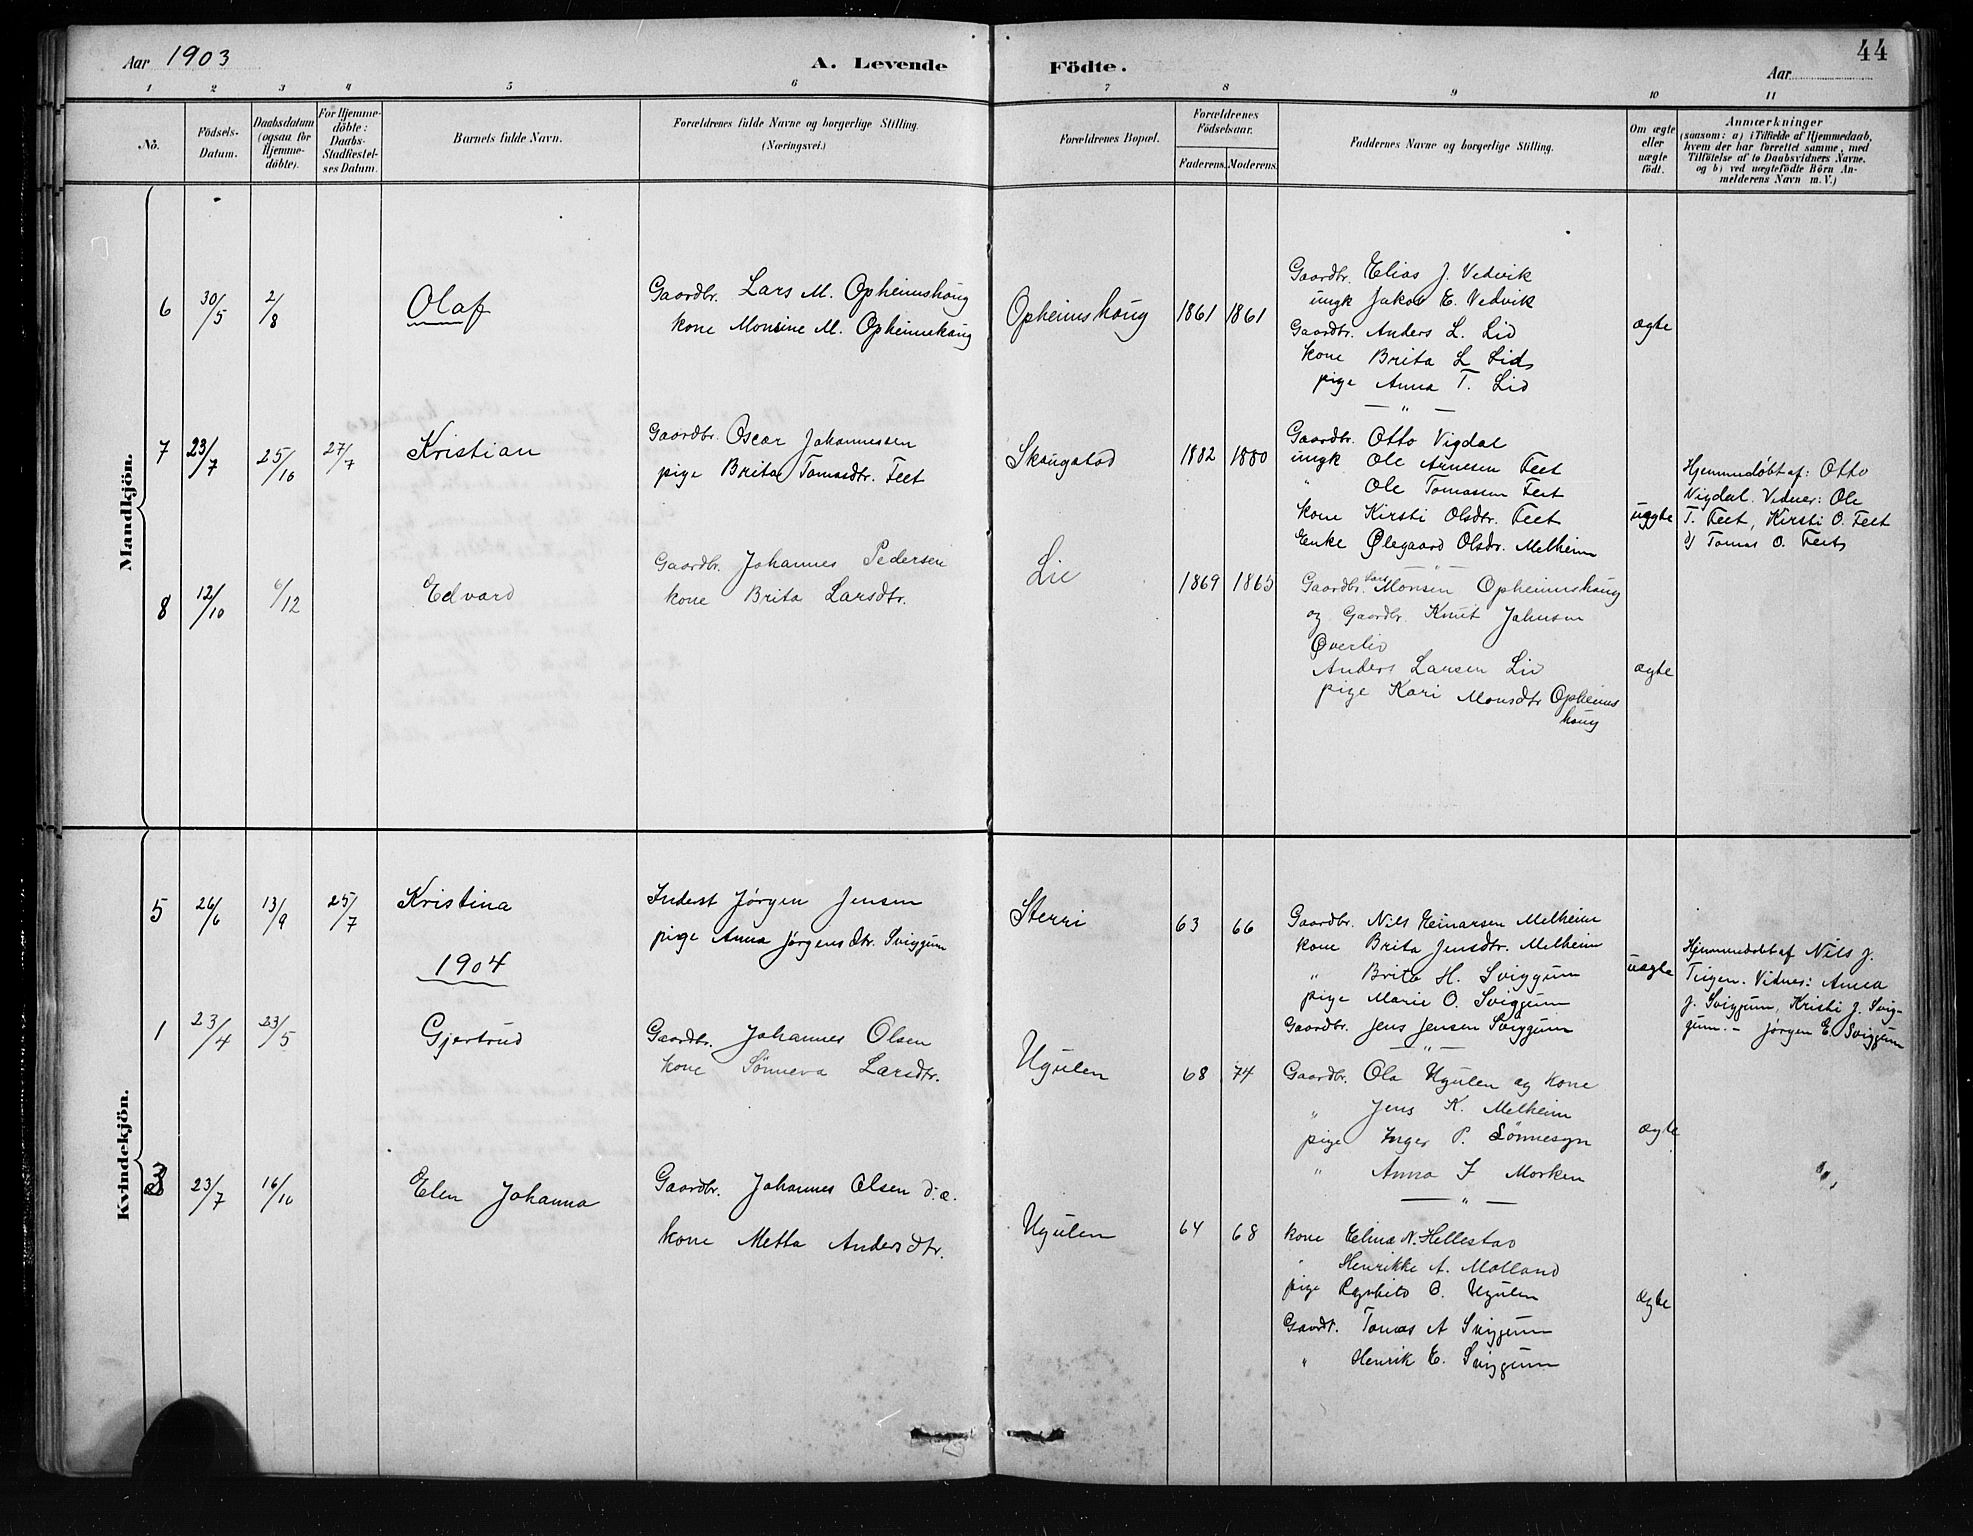 Aar 1903
A. Levende Födte.
Aar
44
1 2 3 4 5 6 7 8 9 10 11
No.
Födsels-Datum.
Daabsdatum (ogsaa for Hjemme-döbte).
For Hjemme-döbte: Daabs-Stadfestel-ses Datum.
Barnets fulde Navn.
Forældrenes fulde Navne og borgerlige Stilling.
(Næringsvei.)
Forældrenes Bopæl.
Forældrenes Födselsaar.
Faderens. Moderens.
Faddernes Navne og borgerlige Stilling.
Om ægte eller uægte födt.
Anmærkninger
(saasom: a) i Tilfælde af Hjemmedaab,
hvem der har forrettet samme, med
Tilföielse af to Daabsvidners Navne.
og b) ved uægtefödte Börn An-
melderens Navn m. V.)
Mandkjön.
6 30/5 2/8 Olaf
Gaardbr. Lars M. Opheimshaug
kone Monsine M. Opheimshaug
Opheimshaug 1861 1861
Gaardbr. Elias J. Vedvik
ungk Jakob E. Vedvik
Gaardbr. Anders L. Lid
kone Brita L. Lids
pige Anna T. Lid
ægte
— " —
7 23/7 25/10 27/7 Kristian
Gaardbr. Oscar Johannessen
pige Brita Tomasdtr. Feet
Skaugstad 1882 1880
Gaardbr. Otto Vigdal
ungk Ole Arnesen Feet
" Ole Tomasen Feet
kone Kirsti Olsdtr. Feet
Enke Ølegaard Olsdr. Melheim
uægte
Hjemmedøbt af: Otto
Vigdal. Vidner: Ole
T. Feet, Kirsti O. Feet
Tomas O. Feets
— " —
8 12/10 6/12 Edvard
Gaardbr. Johannes Pedersen
kone Brita Larsdtr.
Lie 1869 1865
Gaardbr. Lars Monsen Opheimshaug
og Gaardbr. Knut Johnsen
Øverlid
Anders Larsen Lid
pige Kari Monsdtr Opheims
haug
ægte
Kvindekjön.
5 26/6 13/9 25/7 Kristina
Inderst Jørgen Jensen
pige Anna Jørgensdtr. Sviggum
Sterri 63 66
Gaardbr. Nils Einarsen Melheim
kone Brita Jensdtr. Melheim
" Brita H. Sviggum
pige Marie O. Sviggum
Gaardbr. Jens Jensen Sviggum
uægte
Hjemmedøbt af Nils J.
Teigen. Vidner: Anna
J. Sviggum, Kristi J. Svig-
gum. - Jørgen E. Sviggum
— " —
1904
1 23/4 23/5 Gjertrud
Gaardbr. Johannes Olsen
kone Sønneva Larsdtr.
Ugulen 68 74
Gaardbr. Ola Ugulen og kone
" Jens K. Melheim
pige Inger P. Sønnesyn
" Anna I Morken
ægte
— " —
3 23/7 16/10 Elen Johanna
Gaardbr. Johannes Olsen d.æ.
kone Metta Andersdtr.
Ugulen 64 68
kone Elina N. Hellestad
" Henrikke A. Molland
pige Ragnhild O. Ugulen
Gaardbr. Tomas A Sviggum
" Henrik E. Sviggum
ægte